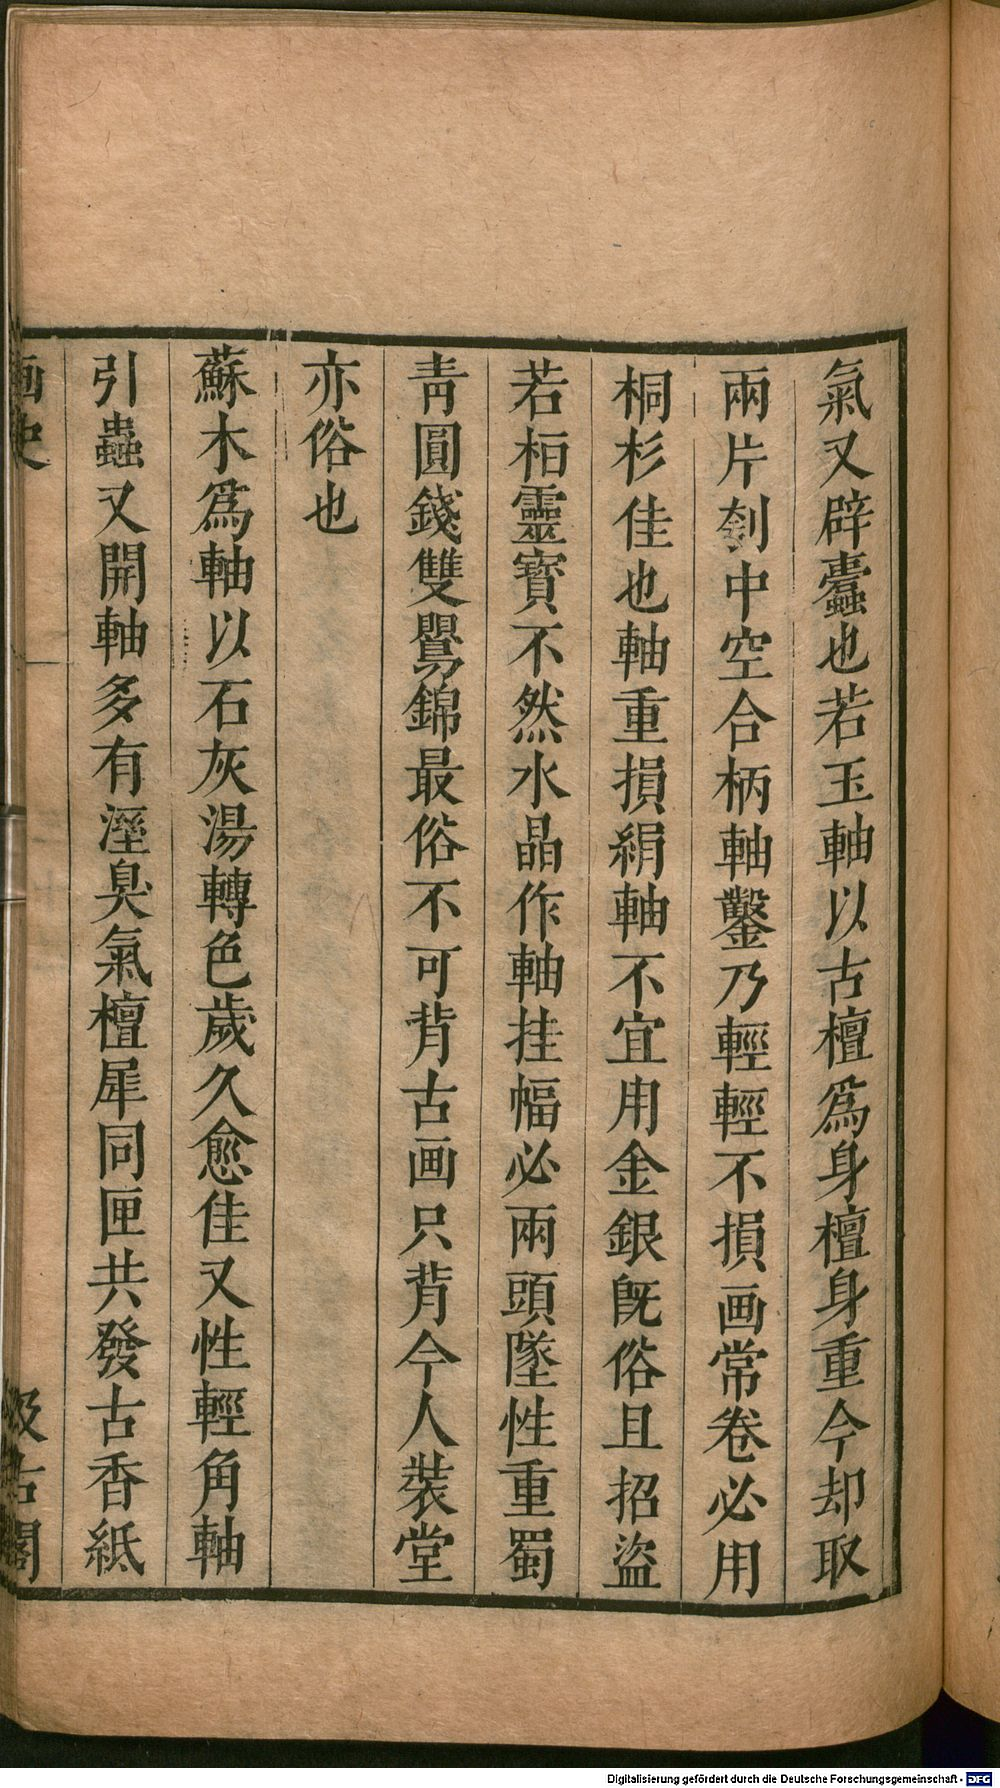 氣又辟蠹也若玉軸以古檀爲身檀身重今却取
兩片刳中空合柄軸鑿乃輕輕不損画常卷必用
桐杉佳也軸重損絹軸不宜用金銀既俗且招盜
若桓靈寶不然水晶作軸挂幅必兩頭墜性重蜀
青圓錢雙鸂錦最俗不可背古画只背今人裝堂
亦俗也
蘇木爲軸以石灰湯轉色歲久愈佳又性輕角軸
引蟲又開軸多有溼臭氣檀犀同匣共發古香紙
画史
汲古閣
Digitalisierung gefördert durch die Deutsche Forschungsgemeinschaft - DFG